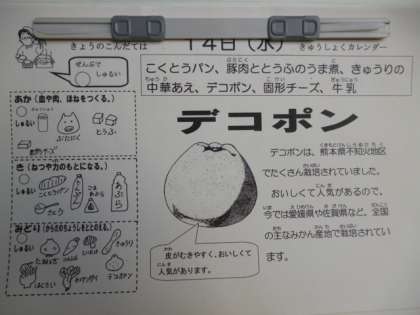 きょうのこんだては
14日(水)
きゅうしょくカレンダー
こくとうパン、豚肉ととうふのうま煮、きゅうりの
中華あえ、デコポン、固形チーズ、牛乳
ぜんぶで
しゅるい
デコポン
デコポンは、熊本県不知火地区
でたくさん栽培されていました。
おいしくて人気があるので、
今では愛媛県や佐賀県など、全国
の主なみかん産地で栽培されてい
ます。
皮がむきやすく、おいしくて
人気があります。
あか(血や肉、ほねをつくる。)
しゅるい
ぶたにく
とうふ
チーズ
き(ねつや力のもとになる。)
しゅるい
こくとうパン
さとう
ごまあぶら
あぶら
みどり(からだのちょうしをととのえる。)
しゅるい
たまねぎ
きゅうり
はくさい
デコポン